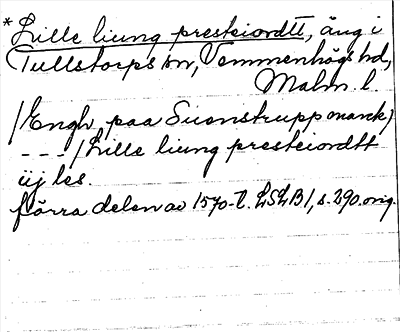 *Lille liung presteiordtt, äng i
Tullstorps sn, Vemmenhögs hd,
Malm. l.
/Engh paa Suenstrupp marck/
---/Lille liung presteiordtt
iij les.
förra delen av 1570-t. LSLB 1, s. 290. orig.